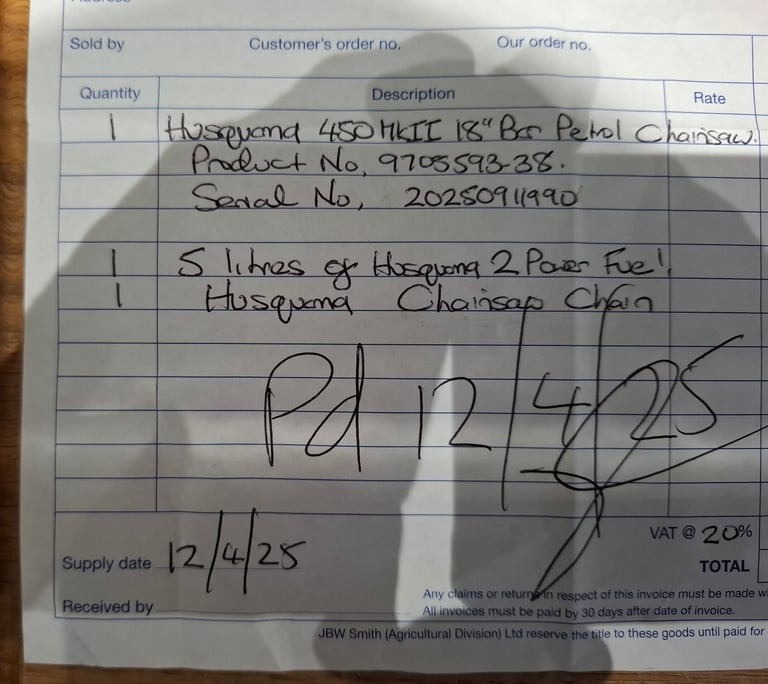 Sold by Customer's order no. Our order no.
Quantity Description Rate
1 Husqvarna 450 MkII 18" Bar Petrol Chainsaw.
Product No, 9705593-38.
Serial No, 20250911990
1 5 litres of Husqvarna 2 Power Fuel.
1 Husqvarna Chainsaw Chain
Pd 12/4/25
VAT @ 20%
Supply date 12/4/25
TOTAL
Any claims or returns in respect of this invoice must be made
Received by
All invoices must be paid by 30 days after date of invoice.
JBW Smith (Agricultural Division) Ltd reserve the title to these goods until paid for